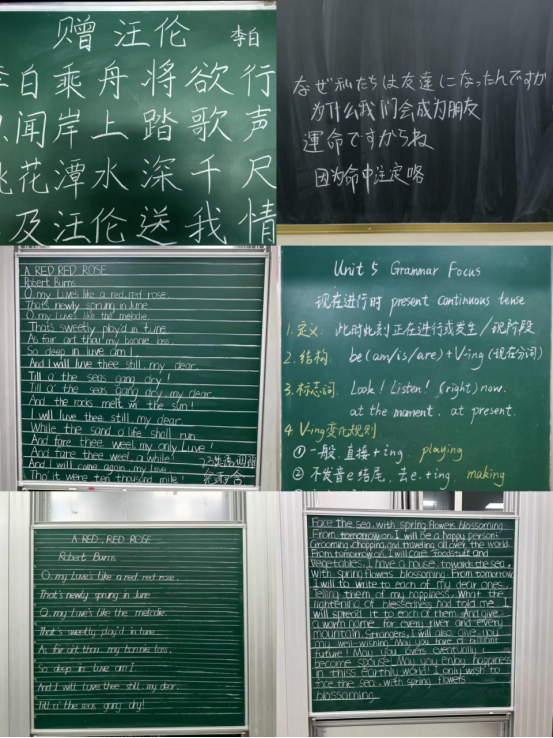 赠 汪伦 李白
李白乘舟将欲行
闻岸上踏歌声
桃花潭水深千尺
及汪伦送我情
なぜ私たちは友達になったんですか
为什么我们会成为朋友
運命ですからね
因为命中注定咯
A RED RED ROSE
Robert Burns
O, my Luve's like a red, red rose.
That's newly sprung in June
O, my Luve's like the melodie.
That's sweetly play'd in tune.
As fair art thou, my bonnie lass,
So deep in luve am I.
And I will luve thee still, my dear.
Till a' the seas gang dry!
Till a' the seas gang dry, my dear.
And the rocks melt wi' the sun!
I will luve thee still, my dear.
While the sand o' life shall run.
And fare thee weel, my only Luve!
And fare thee weel a while!
And I will come again, my luve.
Tho' it were ten thousand mile!
Unit 5 Grammar Focus
现在进行时 present continuous tense
1. 定义: 此时此刻正在进行或发生/现阶段
2. 结构: be(am/is/are)+V-ing(现在分词)
3. 标志词: Look! Listen! (right) now,
at the moment, at present.
4. V-ing变化规则
① 一般, 直接+ing. playing
② 不发音e结尾, 去e, +ing. making
A RED, RED ROSE
Robert Burns
O, my Luve's like a red, red rose,
That's newly sprung in June
O, my Luve's like the melodie.
That's sweetly play'd in tune.
As fair art thou, my bonnie lass,
So deep in luve am I.
And I will luve thee still, my dear.
Till a' the seas gang dry!
Face the sea, with spring flowers blossoming
From tomorrow on, I will be a happy person;
Grooming, chopping and traveling all over the world.
From tomorrow on, I will care foodstuff and
vegetables, I have a house, towards the sea,
with spring flowers blossoming. From tomorrow
I will to write to each of my dear ones.
Telling them of my happiness, What the
lightening of blessedness had told me, I
will spread it to each of them. And give
a warm name for every river and every
mountain, strangers, I will also give you
my well-wishing. May you have a brilliant
future! May you lovers eventually
become spouse! May you enjoy happiness
in thiss earthly world! I only wish to
face the sea, with spring flowers
blossoming.